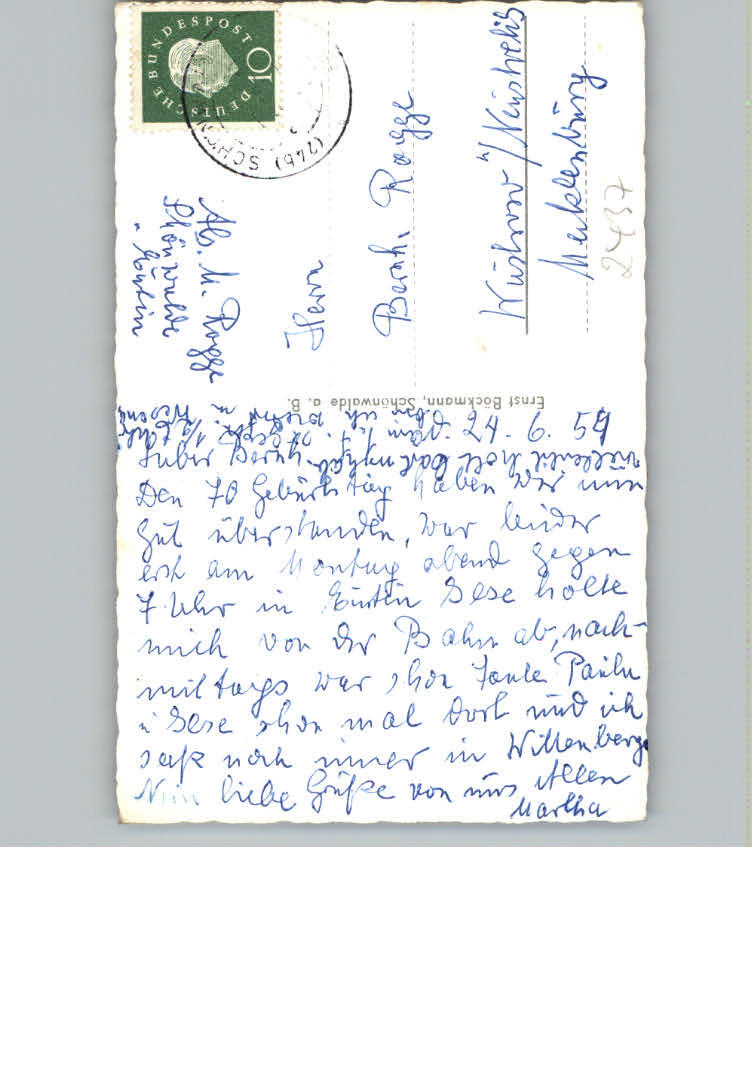 DEUTSCHE BUNDESPOST
10
(24b) SCHÖN
Abs. M. Rogge
Schönwalde
ü. Eutin
Herrn
Bernh. Rogge
Wustrow ü/Neustrelitz
Mecklenburg
2437
Ernst Böckmann, Schönwalde a. B.
d. 24. 6. 59
Lieber Bernh.
Den 70 Geburtstag haben wir nun
gut überstanden, war leider
erst am Montag abend gegen
7 Uhr in Eutin Gese holte
mich von der Bahn ab, nach-
mittags war schon Tante Paula
u Gese schon mal dort und ich
saß noch immer in Wittenberge
Nun liebe Grüße von uns Allen
Martha